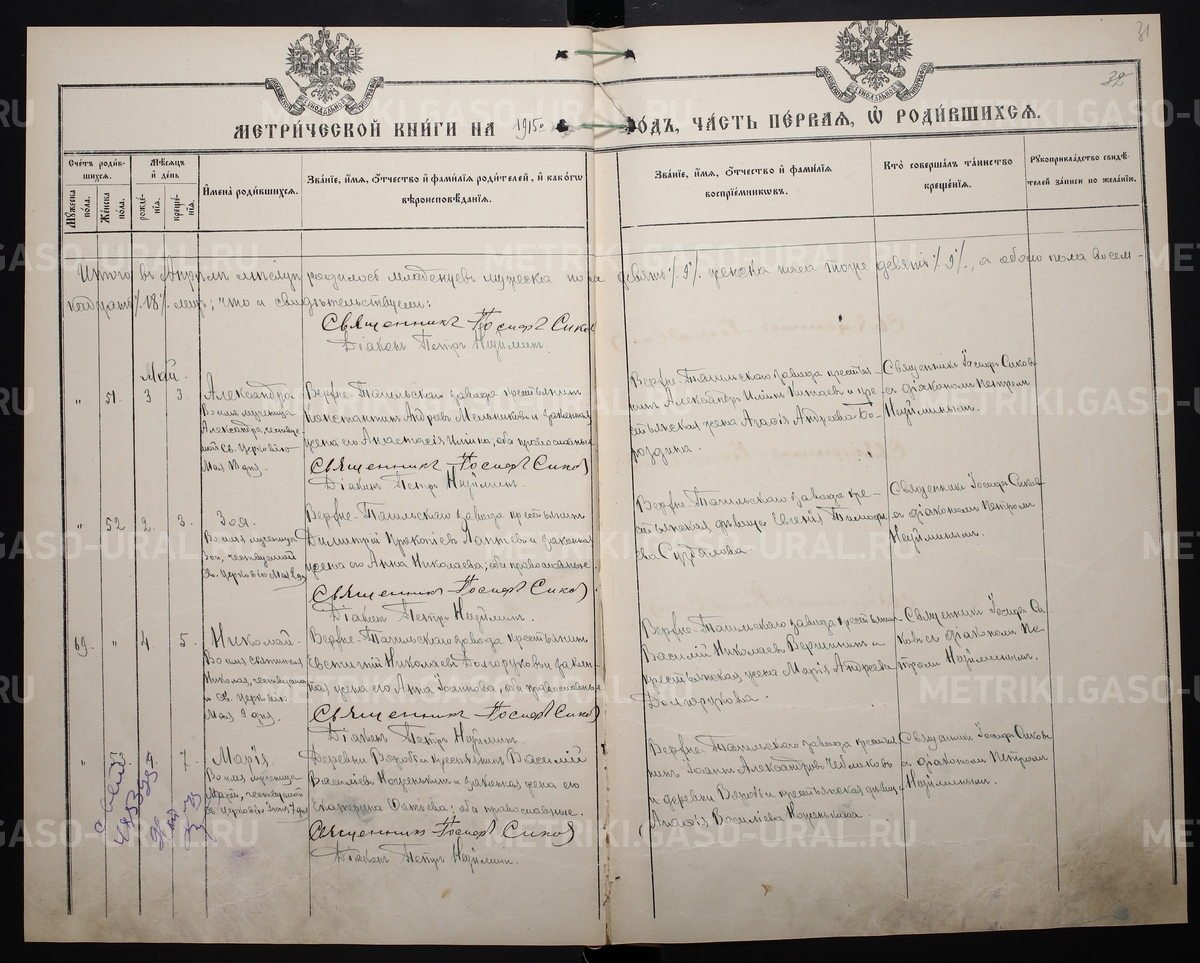 31
32
МЕТРИЧЕСКОЙ КНИГИ НА 1915 ГОДЪ, ЧАСТЬ ПЕРВАЯ, Ѡ РОДИВШИХСЯ.
Счетъ родившихся.
Мужеска пола.
Женска пола.
Мѣсяцъ и день
рожденія.
крещенія.
Имена родившихся.
Званіе, имя, отчество и фамилія родителей, и какого
вѣроисповѣданія.
Званіе, имя, отчество и фамилія
воспріемниковъ.
Кто совершалъ таинство
крещенія.
Рукоприкладство свидѣтелей записи по желанію.
Итого въ Апрѣлѣ мѣсяцѣ родилось младенцевъ мужеска пола девять /9/ женска пола тоже девять /9/, а обоего пола восем-
надцать /18/ ; что и свидѣтельствуемъ:
Священникъ Іосифъ Сиковъ
Діаконъ Петръ Наумминъ.
Май.
" 51 3 3
Александра
Во имя мученицы
Александры, чествуе-
мой Св. Церковію
Мая 18 дня.
Верхне-Тагильскаго завода крестьянинъ
Константинъ Андреевъ Мельниковъ и законная
жена его Анастасія Ильина; оба православные
Священникъ Іосифъ Сиковъ
Діаконъ Петръ
Верхне-Тагильскаго завода крестья-
нинъ Александръ Ильинъ и кре-
стьянская жена Агафія Андреева Бо-
роздина.
Священникъ Іосифъ Сиковъ
съ діакономъ Петромъ
" 52 2 3
Зоя.
Во имя мученицы
Зои, чествуемой
Св. Церковію Мая 2 дня
Верхне-Тагильскаго завода крестьянинъ
Димитрій Прокопіевъ Лаптевъ и законная
жена его Анна Николаева; оба православные.
Священникъ Іосифъ Сиковъ
Діаконъ Петръ
Верхне-Тагильскаго завода кре-
стьянская дѣвица Евгенія Тимофе-
ева
Священникъ Іосифъ Сиковъ
съ діакономъ Петромъ
69. " 4. 5.
Николай.
Во имя святителя
Николая, чествуемаго
Св. Церковію
Мая 9 дня.
Верхне-Тагильскаго завода крестьянинъ
Евстигній Николаевъ Долгоруковъ и закон-
ная жена его Анна Іоаннова; оба православные
Священникъ Іосифъ Сиковъ
Діаконъ Петръ
Верхне-Тагильскаго завода крестьянинъ
Василій Николаевъ Вершининъ и
крестьянская жена Марія Андреева
Долгорукова.
Священникъ Іосифъ Си-
ковъ съ діакономъ Пе-
тромъ
" 7.
Марія.
Во имя мученицы
Маріи, чествуемой
Св. Церковію 7 дня
Деревни Воробьи крестьянинъ Василій
Васильевъ Кошенькинъ и законная жена его
Екатерина ; оба православные.
Священникъ Іосифъ Сиковъ
Діаконъ Петръ
Верхне-Тагильскаго завода крестья-
нинъ Іоаннъ Александровъ Чеблаковъ
и деревни Воробьи крестьянская дѣвица
Агафія Васильева Кошенькина.
Священникъ Іосифъ Сиковъ
съ діакономъ Петромъ
METRIKI.GASO-URAL.RU